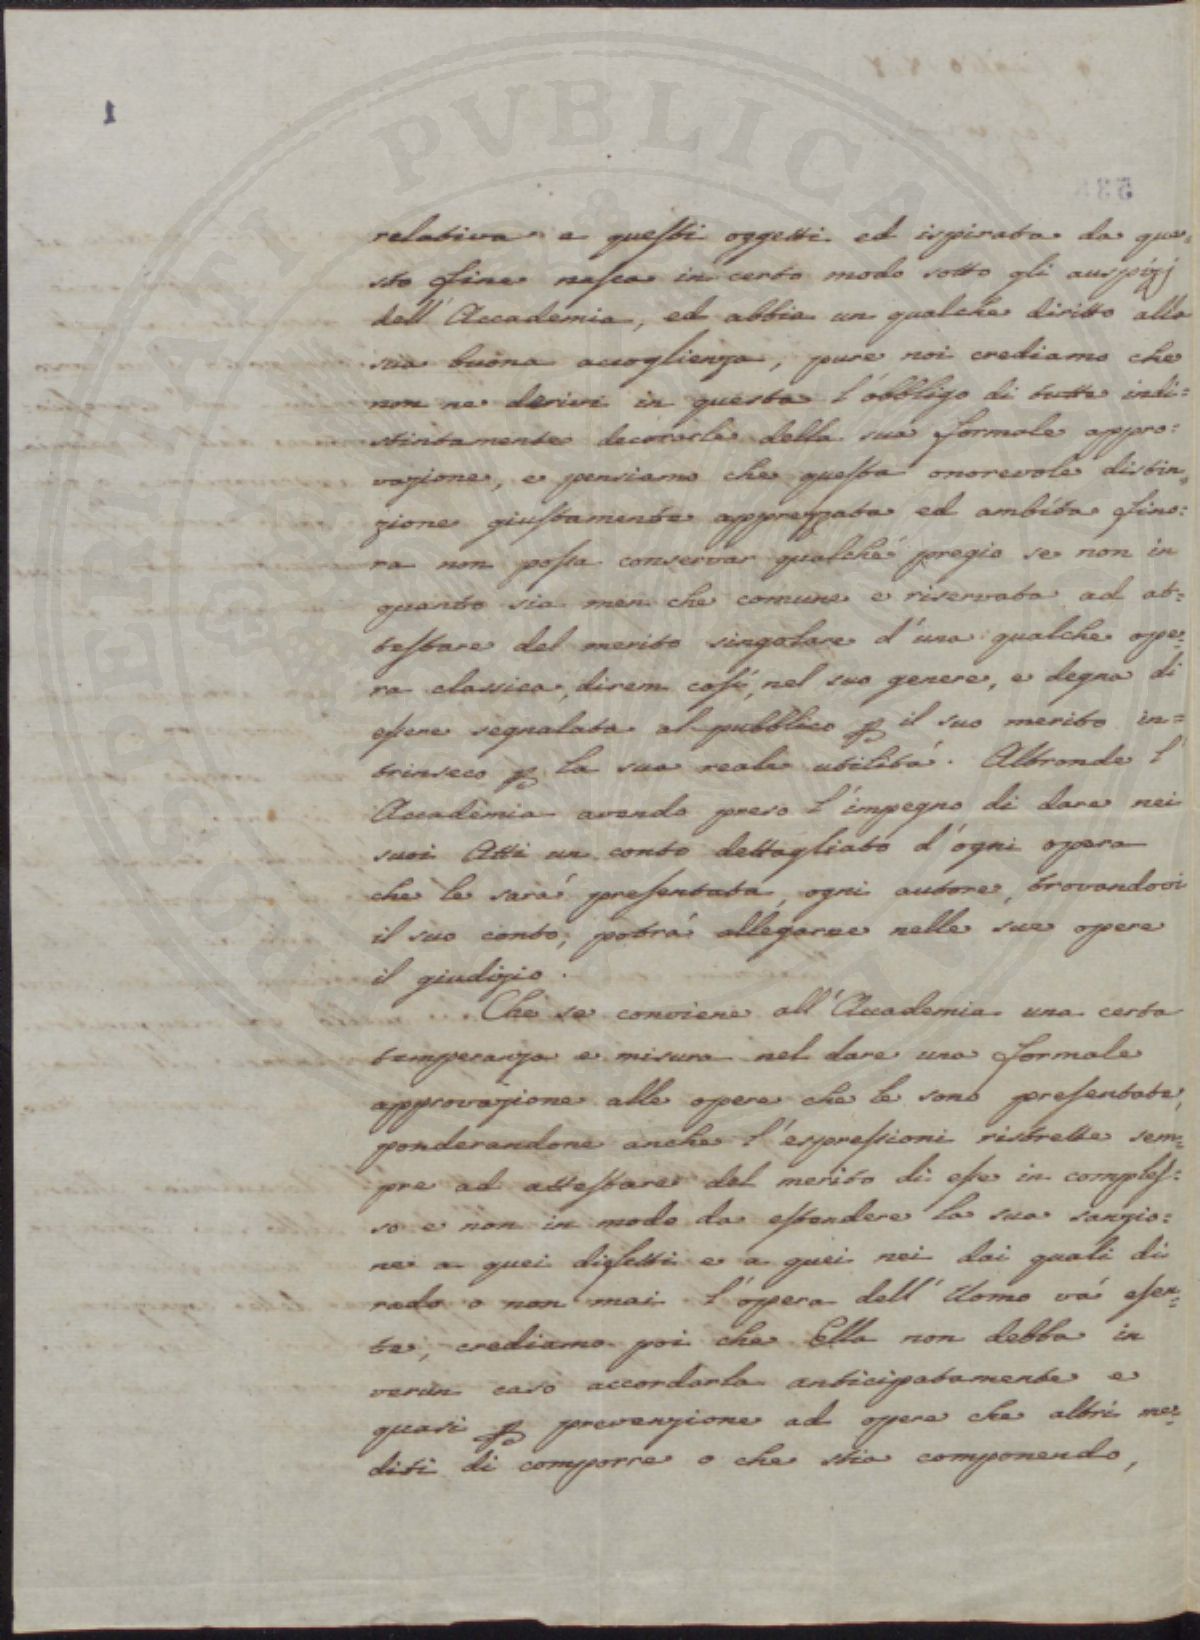 1
relativa a questi oggetti ed ispirata da que=
sto fine nasca in certo modo sotto gli auspizj
dell'Accademia, ed abbia un qualche diritto alla
sua buona accoglienza, pure noi crediamo che
non ne derivi in questa l'obbligo di tutte indi=
stintamente decorarle della sua formale appro=
vazione, e pensiamo che questa onorevole distin=
zione giustamente apprezzata ed ambita fino=
ra non possa conservar qualche pregio se non in
quanto sia men che comune e riservata ad at=
testare del merito singolare d'una qualche ope=
ra classica, direm così, nel suo genere, e degna di
essere segnalata al pubblico p il suo merito in=
trinseco p la sua reale utilità. Altronde l'
Accademia avendo preso l'impegno di dare nei
suoi Atti un conto dettagliato d'ogni opera
che le sarà presentata, ogni autore, trovandovi
il suo conto, potrà allegarne nelle sue opere
il giudizio.
Che se conviene all'Accademia una certa
temperanza e misura nel dare una formale
approvazione alle opere che le sono presentate,
ponderandone anche l'espressioni ristrette sem=
pre ad attestare del merito di esse in comples=
so e non in modo da estendere la sua sanzio=
ne a quei difetti e a quei nei dai quali di
rado o non mai l'opera dell'Uomo và esen=
te, crediamo poi che Ella non debba in
verun caso accordarla anticipatamente e
quasi p prevenzione ad opere che altri me=
diti di comporre o che stia componendo,
PVBLICA